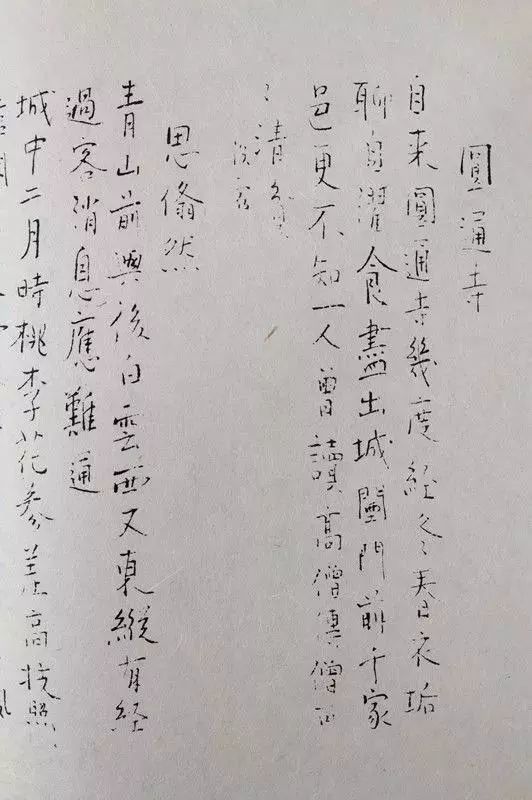 圓通寺
自来圓通寺幾度経冬春衣垢
聊自濯食盡出城闉門前千家
邑更不知一人曽讀高僧傳僧可
ゝ清貧
思翛然
青山前與後白雲西又東縱有経
過客消息應難通
城中二月時桃李花参差高枝照